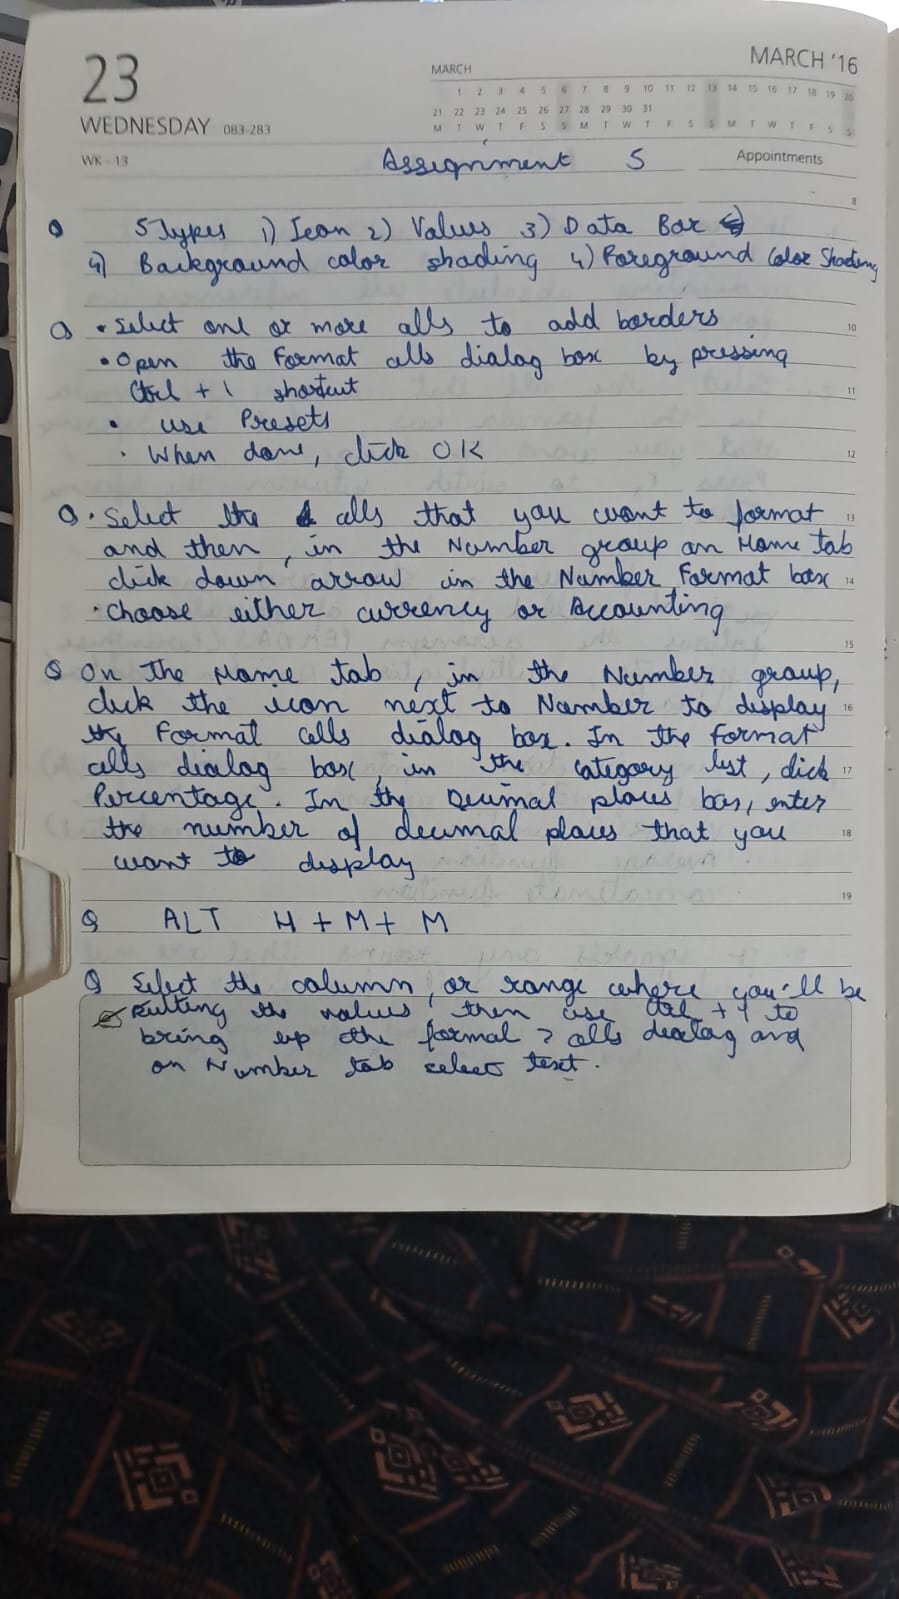 23
WEDNESDAY 083-283
WK - 13
MARCH '16
MARCH
1 2 3 4 5 6 7 8 9 10 11 12 13 14 15 16 17 18 19 20
21 22 23 24 25 26 27 28 29 30 31
M T W T F S S M T W T F S S M T W T F S S
Assignment 5
Appointments
8
Q 5 Types 1) Icon 2) Values 3) Data Bar
4) Background color shading 4) Foreground Color Shading
Q • Select one or more cells to add borders
10
• Open the Format cells dialog box by pressing
Ctrl + 1 shortcut
11
• use Presets
• When done, click OK
12
Q • Select the cells that you want to format
13
and then, in the Number group on Home tab
click down arrow in the Number Format box
14
• Choose either currency or Accounting
15
Q On the Home tab, in the Number group,
click the icon next to Number to display
16
the Format cells dialog box. In the Format
cells dialog box, in the category list, click
17
Percentage. In the Decimal places box, enter
the number of decimal places that you
18
want to display
19
Q ALT H + M + M
Q Select the column, or range where you'll be
Putting the values, then use Ctrl + 1 to
bring up the format > cells dialog and
on Number tab select text.